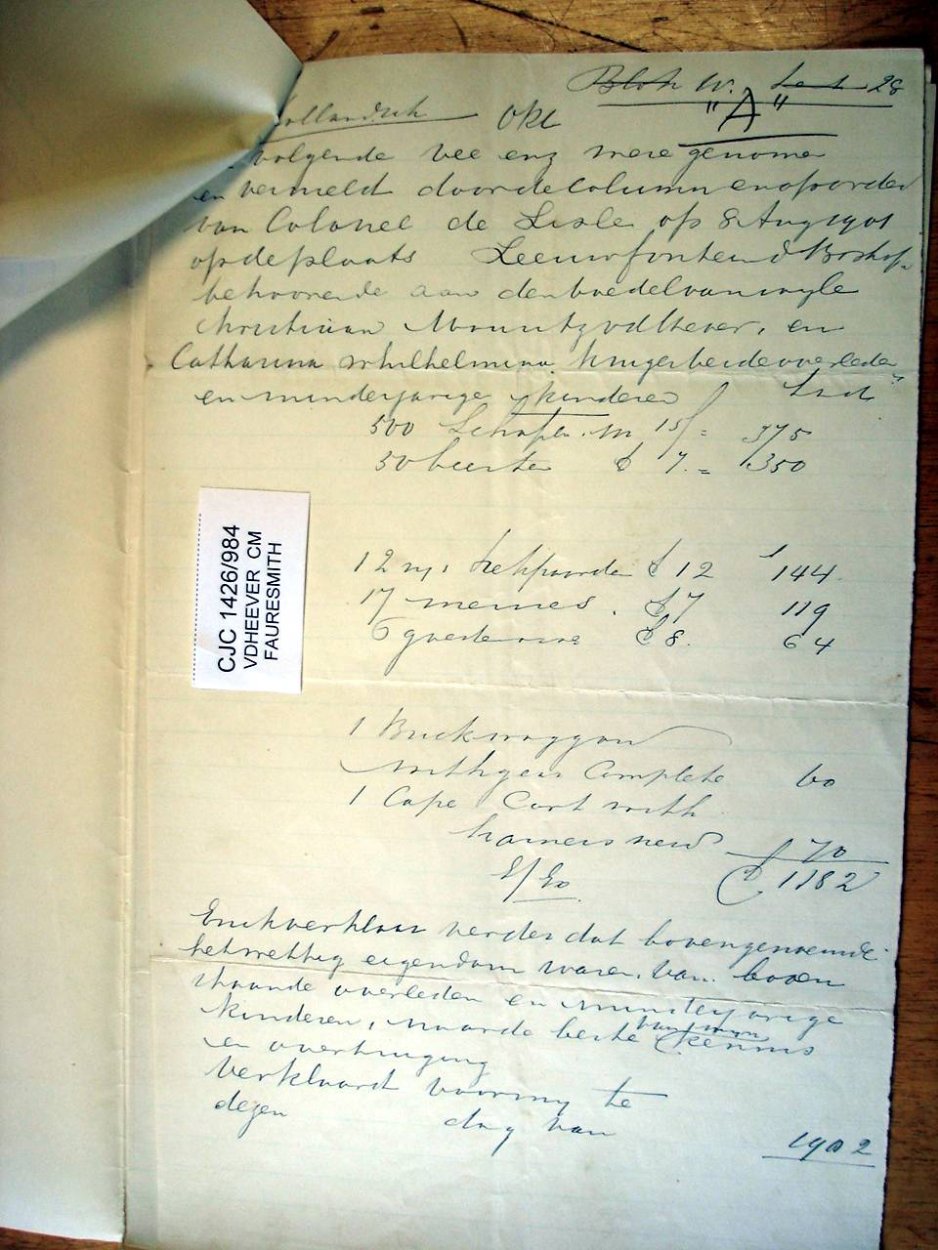 Blok W. 28
"A"
Hollandsch
volgende vee enz genomen
en vermeld door de column en op order
van Colonel de Lisle op 8 Aug 1901
op de plaats Leeuwfontein d Boshof
behoorende aan den boedel van wyle
Christiaan Mouritz vd Heever, en
Catharina Whilhelmina Kruger beide overleden
en minderjarige kinderen
500 Schapen 15/ = 375
50 beesten £ 7. = 350
12 ry. trekpaarde £ 12 144
17 merries. £ 7 119
£ 8. 64
1 Buckwaggon
with gear Complete 60
1 Cape Cart with
harness new 70
E/Eo £ 1182
En ik verklaar verder dat bovengenoemde
het wettig eigendom waren van boven
staande overleden en minderjarige
kinderen, naar de beste van myn kennis
en overtuiging
Verklaard voor my te
dezen dag van
1902
CJC 1426/984
VDHEEVER CM
FAURESMITH